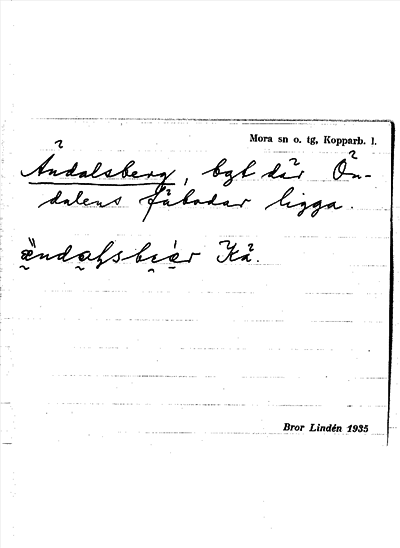 Mora sn o. tg, Kopparb. l.
Åndalsberg, bgt där Ån-
dalens fäbodar ligga.
Kå.
Bror Lindén 1935